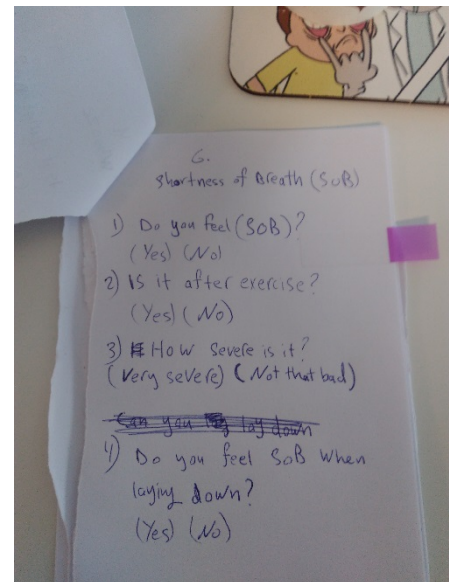 6.
Shortness of Breath (SOB)
1) Do you feel (SOB)?
(Yes) (No)
2) Is it after exercise?
(Yes) (No)
3) How severe is it?
(Very severe) (Not that bad)
Can you lay down
4) Do you feel SOB when
laying down?
(Yes) (No)